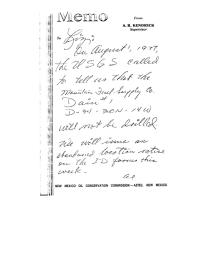 Memo
From
A. R. KENDRICK
Supervisor
To
In August, 1977,
the USGS called
to tell us that the
Mountain Fuel Supply Co.
will not be drilled
We will issue an
abandoned location notice
on the
forms this
week.
NEW MEXICO OIL CONSERVATION COMMISSION - AZTEC, NEW MEXICO